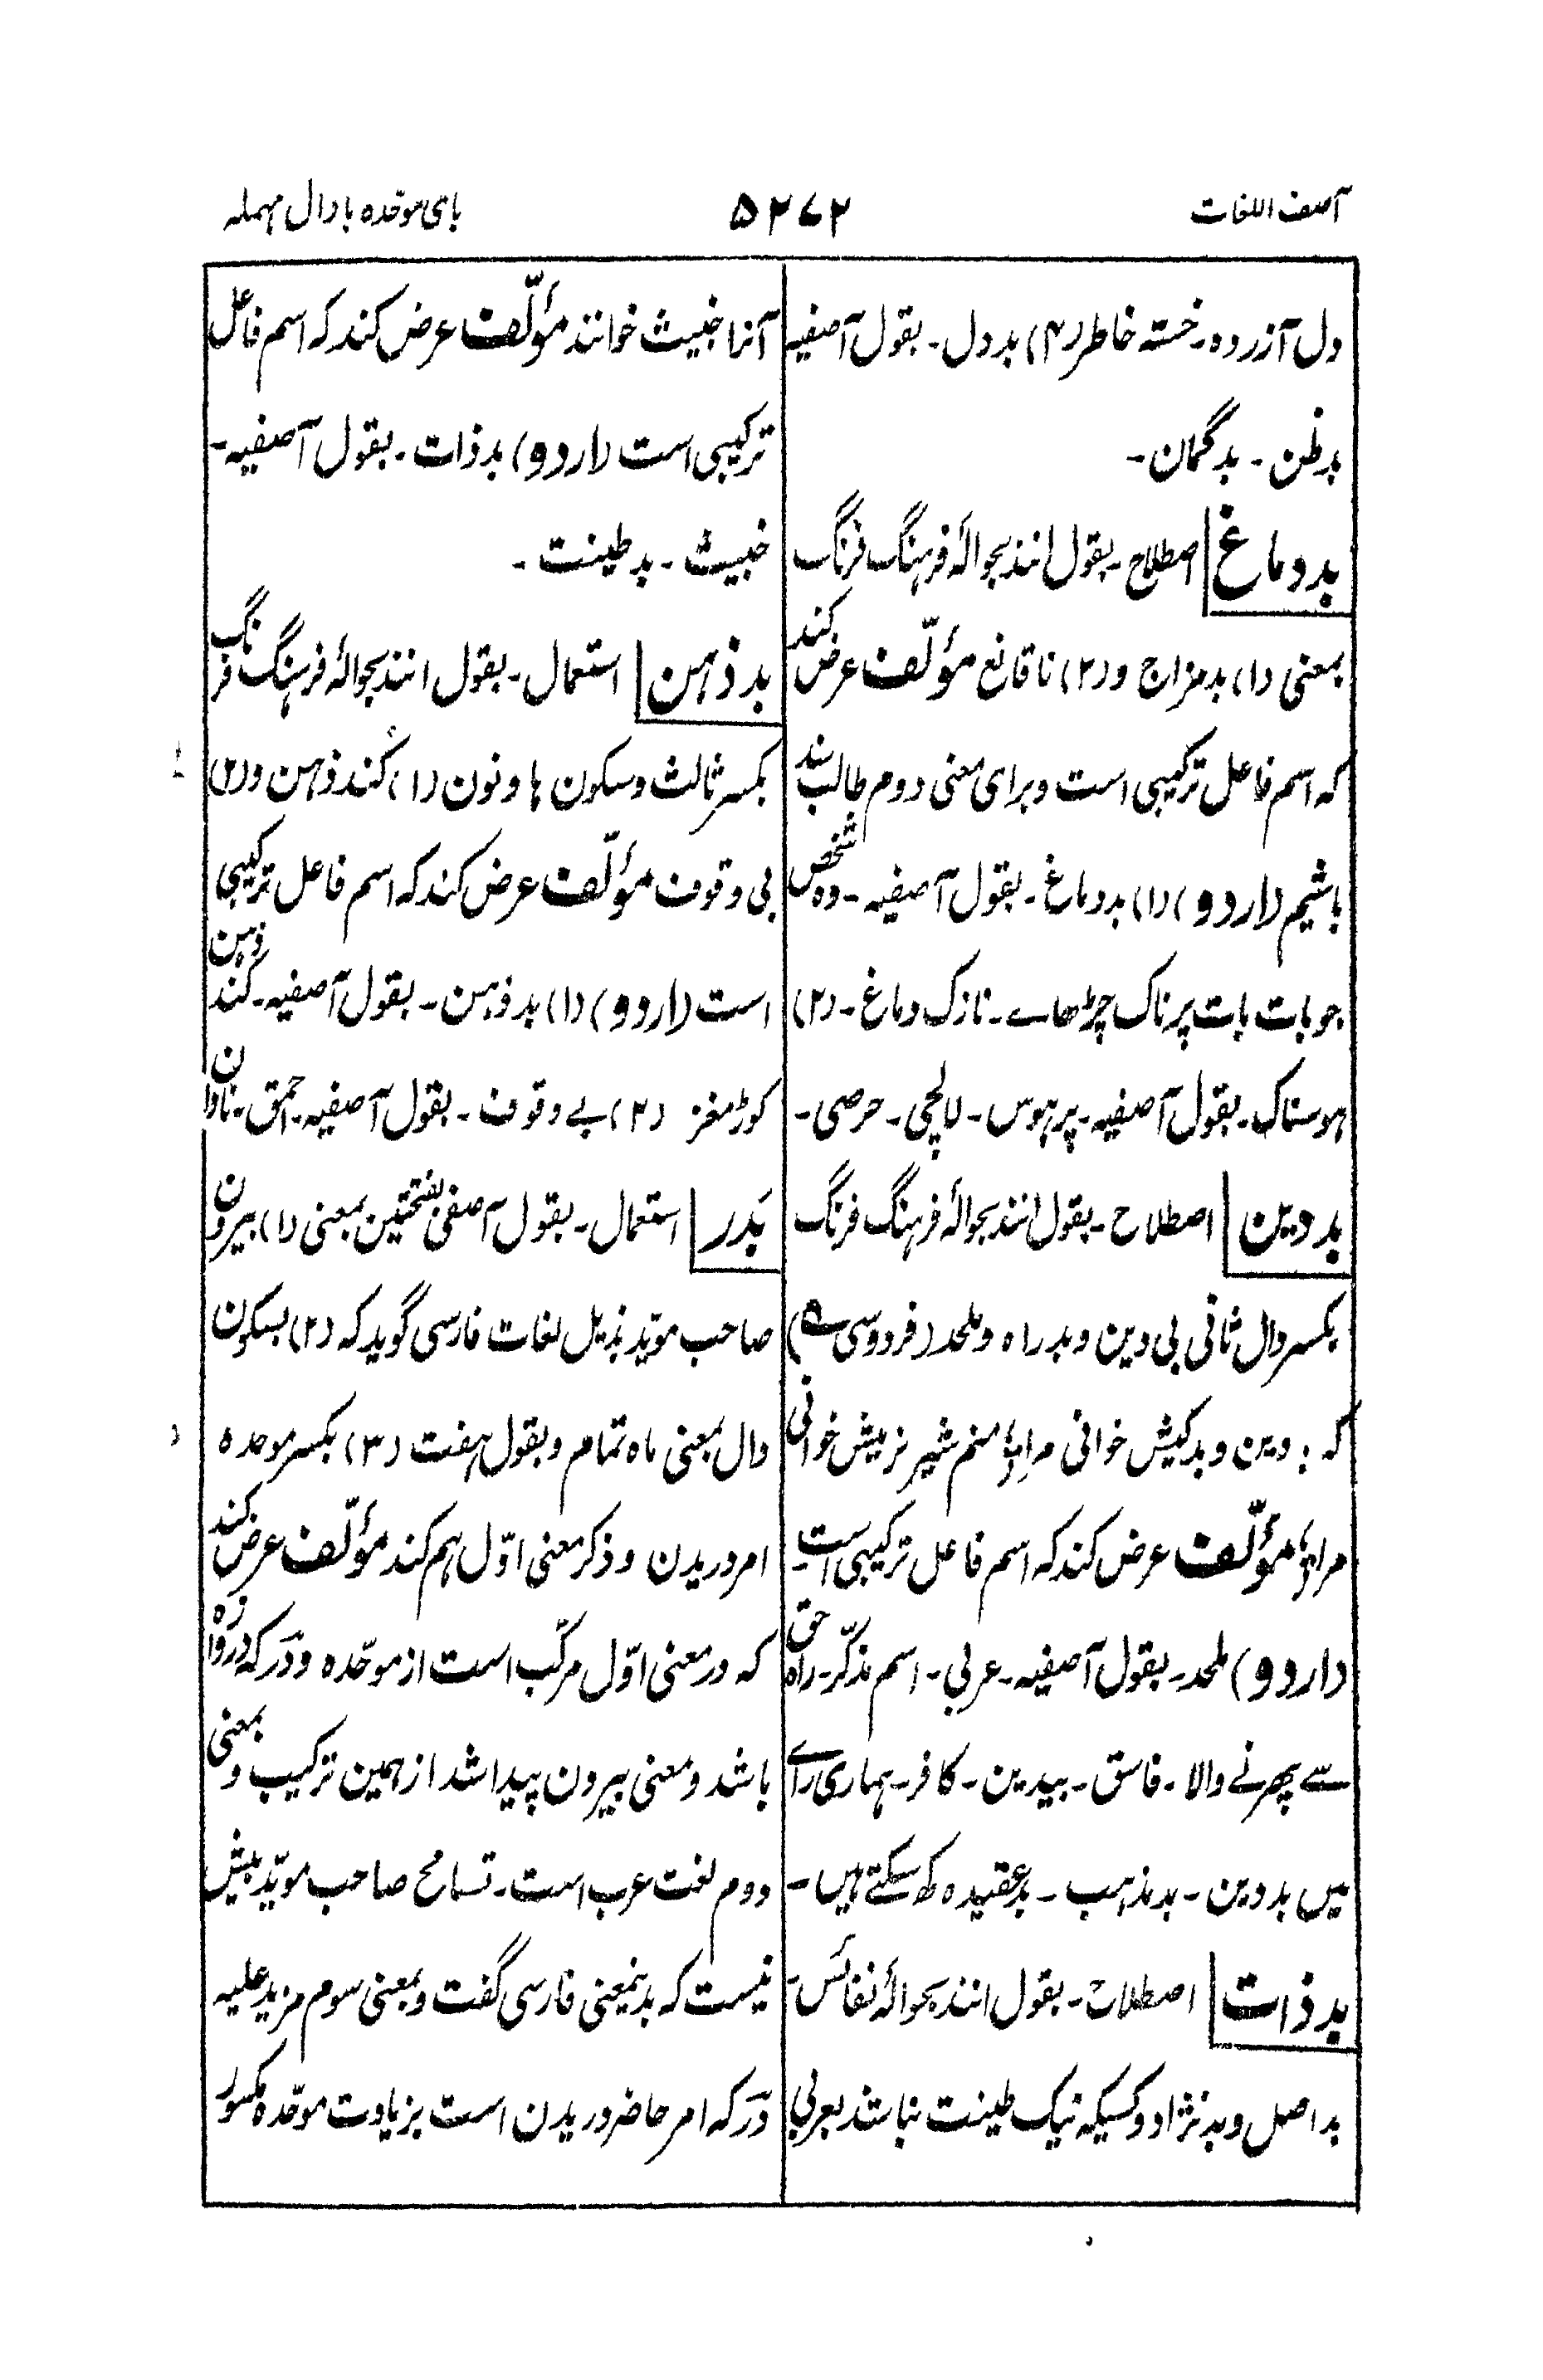 آصف اللغات
۵۲۷۲
بای موحّده با دال مہملہ
دل آزردہ۔ خستہ خاطر (۴) بد دل۔ بقول آصفیہ
بدظن۔ بد گمان۔
بد دماغ اصطلاح۔ بقول انند بحوالۂ فرہنگ فرنگ
بمعنی (۱) بدمزاج و (۲) ناقانع مؤلّف عرض کند
کہ اسم فاعل ترکیبی است و برای معنی دوم طالب سند
باشیم (اردو) (۱) بد دماغ۔ بقول آصفیہ۔ وہ شخص
جو بات بات پر ناک چڑھاے۔ نازک دماغ۔ (۲)
ہوسناک۔ بقول آصفیہ۔ پرہوس۔ لالچی۔ حرصی۔
بد دین اصطلاح۔ بقول انند بحوالۂ فرہنگ فرنگ
بکسر دال ثانی بی دین و بدراہ و ملحد (فردوسی ؎)
کہ بددین و بدکیش خوانی مرا؛ منم شیر نر میش خوانی
مرا؛ مؤلّف عرض کند کہ اسم فاعل ترکیبی است۔
(اردو) ملحد۔ بقول آصفیہ۔ عربی۔ اسم مذکّر۔ راہ حق
سے پھرنے والا۔ فاسق۔ بیدین۔ کافر۔ ہماری راے
میں بد دین۔ بد مذہب۔ بد عقیدہ کہ سکتے ہیں۔
بد ذات اصطلاح۔ بقول انند بحوالۂ نفائس۔
بد اصل و بد نژاد و کسیکہ نیک طینت نباشد بعربی
آنرا خبیث خوانند مؤلّف عرض کند کہ اسم فاعل
ترکیبی است (اردو) بد ذات۔ بقول آصفیہ۔
خبیث۔ بد طینت۔
بد ذہن استعمال۔ بقول انند بحوالۂ فرہنگ فرنگ
بکسر ثالث و سکون ہا و نون (۱) کُند ذہن و (۲)
بی وقوف مؤلّف عرض کند کہ اسم فاعل ترکیبی
است (اردو) (۱) بد ذہن۔ بقول آصفیہ۔ کُند ذہن
کوڑ مغز (۲) بے وقوف۔ بقول آصفیہ۔ احمق۔ نادان
بَدر استعمال۔ بقول آصفی بفتحتین بمعنی (۱) بیرون
صاحب مویّد بذیل لغات فارسی گوید کہ (۲) بسکون
دال بمعنی ماہ تمام و بقول ہفت (۳) بکسر موحدہ
امر دریدن و ذکر معنی اوّل ہم کند مؤلّف عرض کند
کہ در معنی اوّل مرکّب است از موحّدہ و دَر کہ دروازہ
باشد و معنی بیرون پیدا شد از ہمین ترکیب و بمعنی
دوم لغت عرب است۔ تسامح صاحب مویّد بیش
نیست کہ بدینمعنی فارسی گفت و بمعنی سوم مزید علیہ
دَر کہ امر حاضر دریدن است بزیادت موحّدہ مکسور